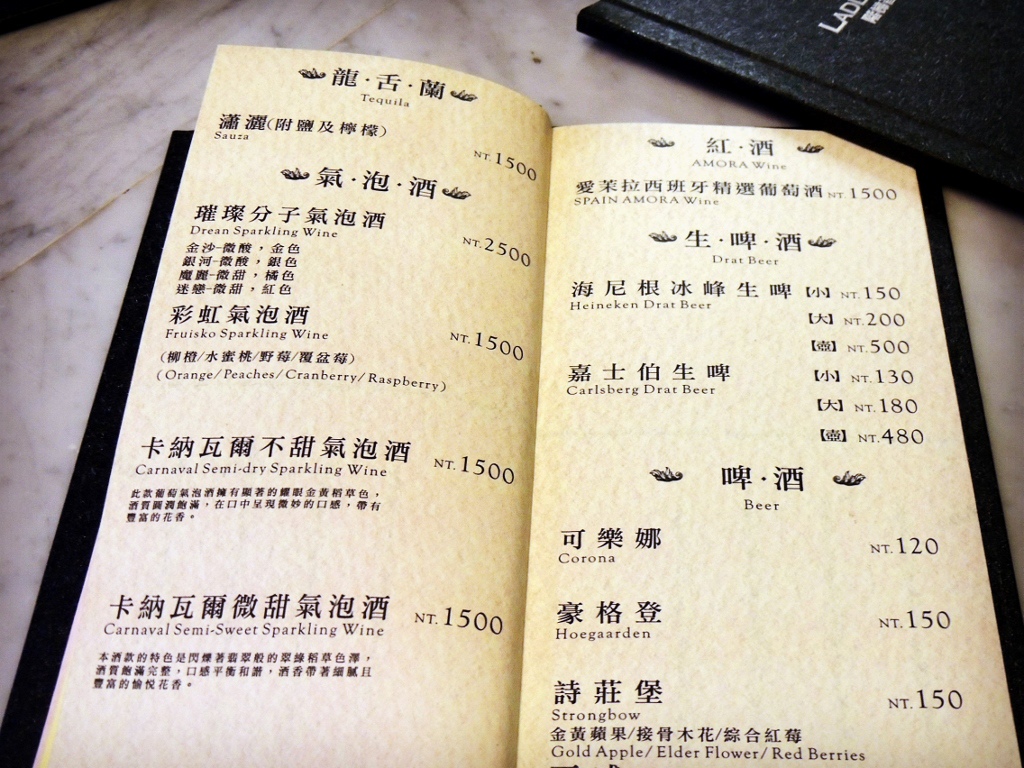 龍·舌·蘭
Tequila
瀟灑(附鹽及檸檬)
Sauza
NT.1500
氣·泡·酒
璀璨分子氣泡酒
Drean Sparkling Wine
NT.2500
金沙-微酸,金色
銀河-微酸,銀色
魔麗-微甜,橘色
迷戀-微甜,紅色
彩虹氣泡酒
Fruisko Sparkling Wine
NT.1500
(柳橙/水蜜桃/野莓/覆盆莓)
(Orange/Peaches/Cranberry/Raspberry)
卡納瓦爾不甜氣泡酒
Carnaval Semi-dry Sparkling Wine
NT.1500
此款葡萄氣泡酒擁有顯著的耀眼金黃稻草色,
酒質圓潤飽滿,在口中呈現微妙的口感,帶有
豐富的花香。
卡納瓦爾微甜氣泡酒
Carnaval Semi-Sweet Sparkling Wine
NT.1500
本酒款的特色是閃爍著翡翠般的翠綠稻草色澤,
酒質飽滿完整,口感平衡和諧,酒香帶著細膩且
豐富的愉悅花香。
紅·酒
AMORA Wine
愛茉拉西班牙精選葡萄酒 NT.1500
SPAIN AMORA Wine
生·啤·酒
Drat Beer
海尼根冰峰生啤【小】NT.150
Heineken Drat Beer
【大】NT.200
【壺】NT.500
嘉士伯生啤 【小】NT.130
Carlsberg Drat Beer
【大】NT.180
【壺】NT.480
啤·酒
Beer
可樂娜 NT.120
Corona
豪格登 NT.150
Hoegaarden
詩莊堡 NT.150
Strongbow
金黃蘋果/接骨木花/綜合紅莓
Gold Apple/Elder Flower/Red Berries